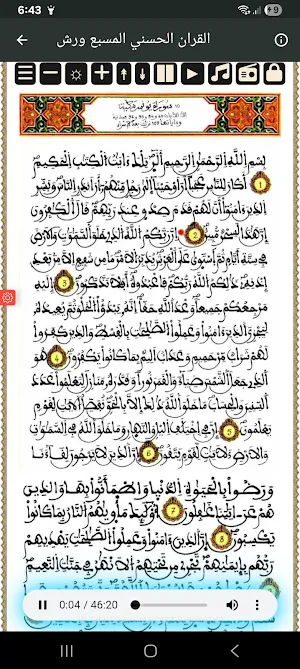 6:43
9
القران الحسني المسبع ورش
سورة يونس مكية
بسم الله الرحمن الرحيم الر تلك ءايت الكتب الحكيم
1 أكان للناس عجبا ان اوحينا إلى رجل منهم أن انذر الناس وبشر
الذين ءامنوا أن لهم قدم صدق عند ربهم قال الكفرون
إن هذا لسحر مبين 2 إن ربكم الله الذي خلق السموت والارض
في ستة أيام ثم استوى على العرش يدبر الامر ما من شفيع الا من بعد
إذنه ذلكم الله ربكم فاعبدوه أفلا تذكرون 3 إليه
مرجعكم جميعا وعد الله حقا إنه يبدؤا الخلق ثم يعيده
ليجزي الذين ءامنوا وعملوا الصلحت بالقسط والذين كفروا
لهم شراب من حميم وعذاب اليم بما كانوا يكفرون 4 هو
الذي جعل الشمس ضياء والقمر نورا وقدره منازل لتعلموا عدد
السنين والحساب ما خلق الله ذلك إلا بالحق نفصل الايت لقوم
يعلمون 5 إن في اختلف اليل والنهار وما خلق الله في السموت
والارض لأيت لقوم يتقون 6 إن الذين لا يرجون لقاءنا
ورضوا بالحيوة الدنيا واطمأنوا بها والذين
هم عن ءايتنا غفلون 7 أولئك مأويهم النار بما كانوا
يكسبون 8 إن الذين ءامنوا وعملوا الصلحت يهديهم
ربهم بإيمنهم تجري من تحتهم الانهر في جنت النعيم
0:04 / 46:20